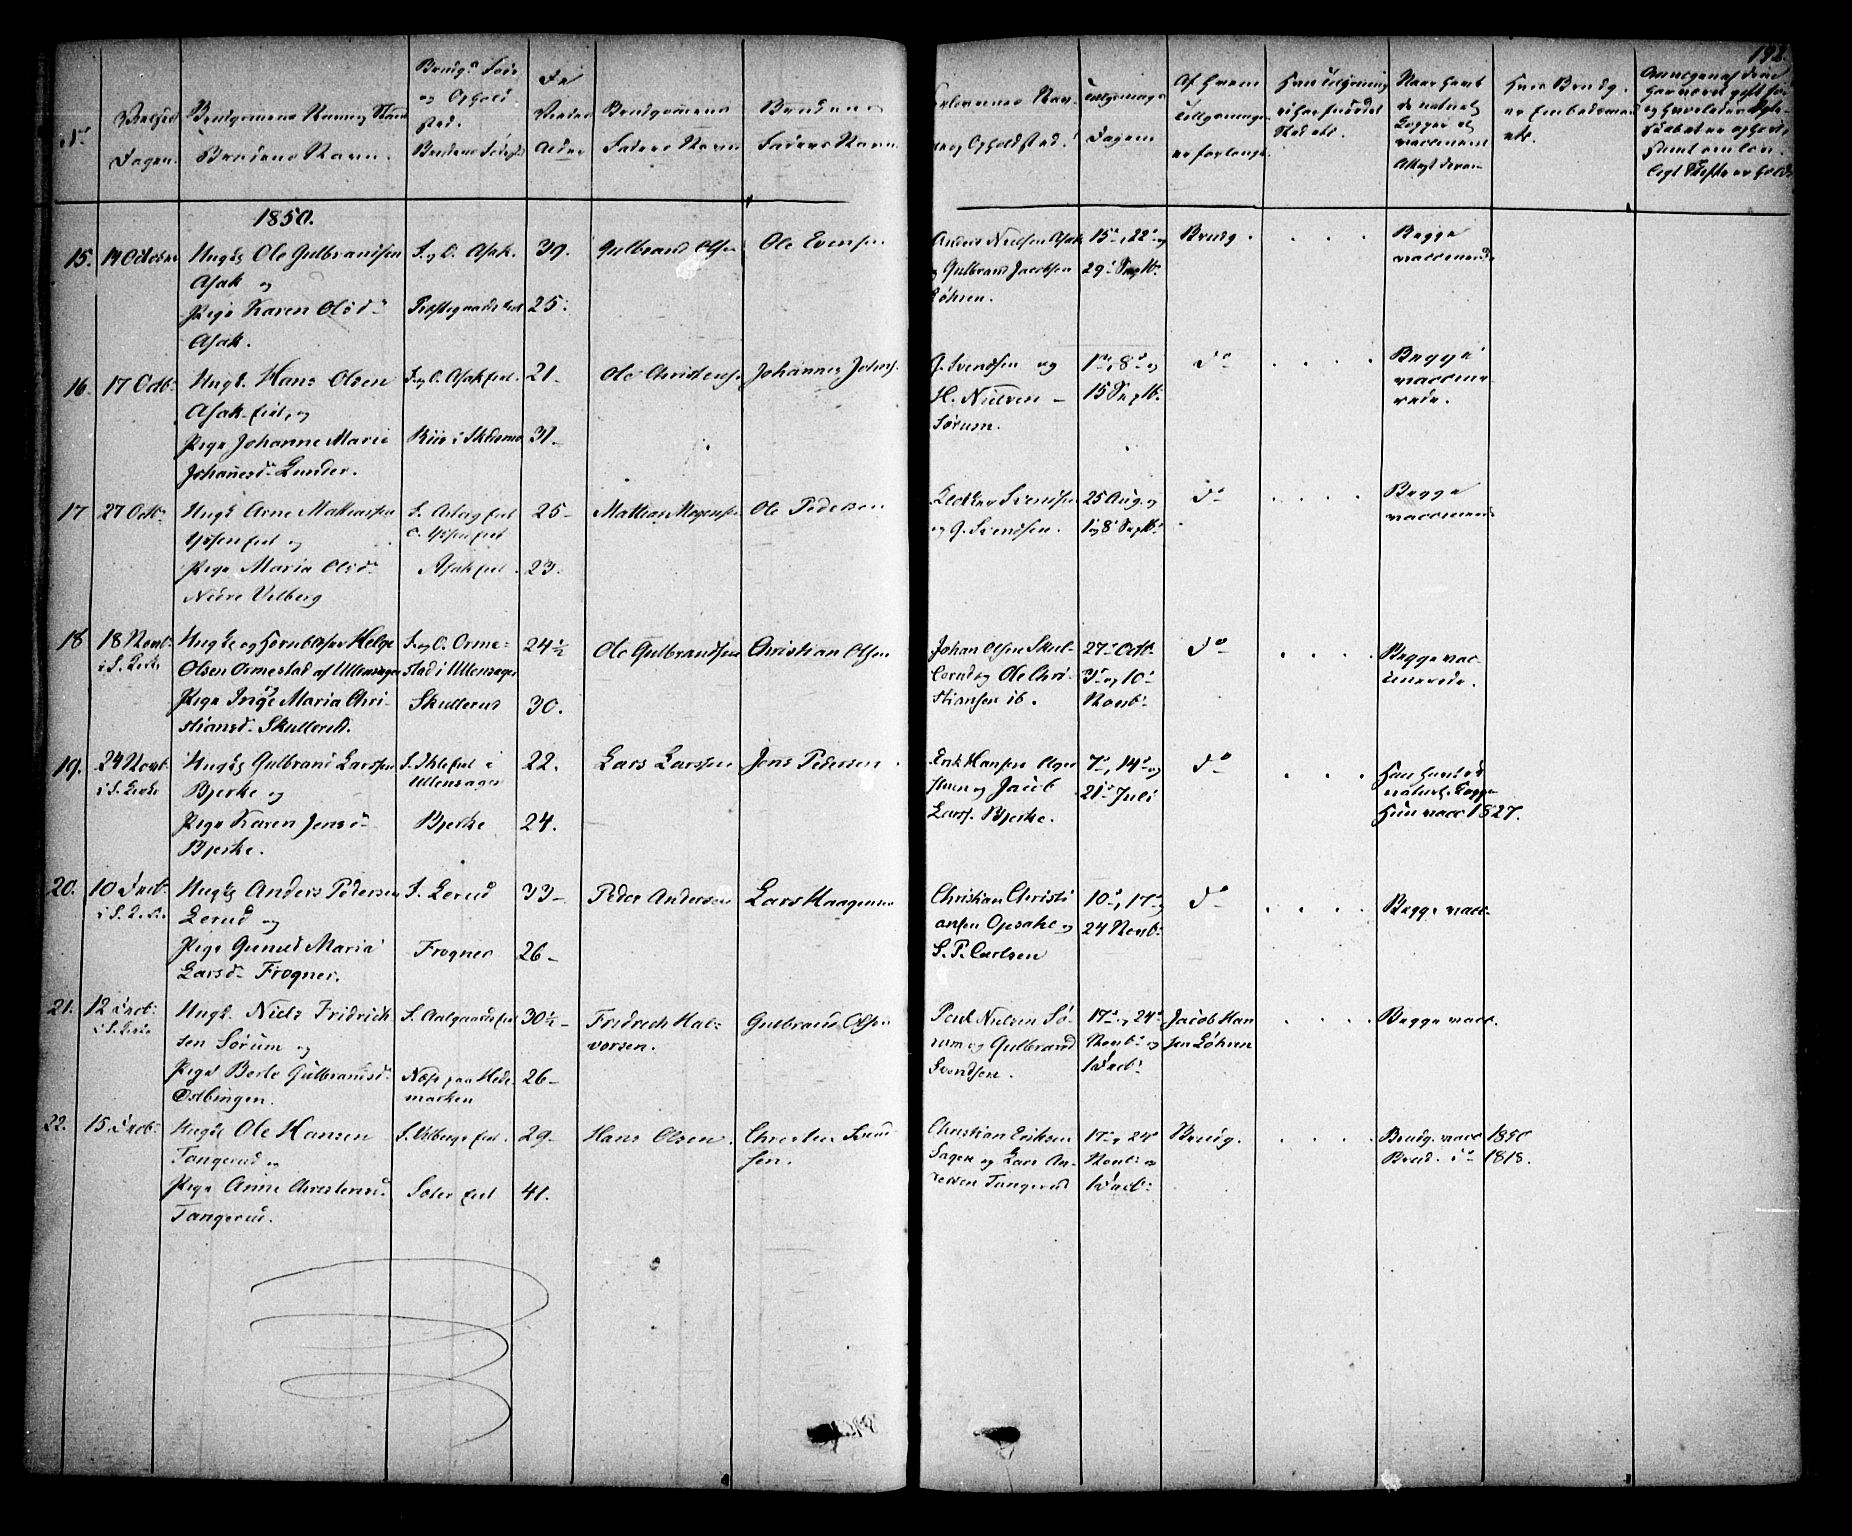 192.
No
Vielses
Dagen.
Brudgomens Navn og Stand
Brudens Navn.
Brudg. Føde
og Ophold
sted.
Brudens Fødest.
De
Viedes
Alder
Brudgomens
Faders Navn
Brudens
Faders Navn
Forlovernes Nav-
ne og Opholdsted.
Tillysnings
Dagen
Af hvem
Tillysningen
er forlangt.
1850.
15. 14 October
Ungk Ole Gulbrandsen
Asak og
Pige Karen Olsd.
Asak.
F. og O. Asak.
Præstegaards eiet
39.
25.
Gulbrand Olsen
Ole Evensen
Anders Nielsen Asak
og Gulbrand Jacobsen
Løhren.
15de, 22de og
29de Septb.
Brudg.
Begge
vaccinerede
16. 17 Octb.
Ungk. Hans Olsen
Asak-eiet, og
Pige Johanne Marie
Johannesd. Lunder.
F. og O. Asak eiet.
Riis i Skedsmo
21.
31.
Ole Christens.
Johannes Johns.
G. Svendsen og
H. Nielsen
Sørum.
1ste, 8de og
15 Septb.
Do
Begge
vaccine-
rede.
17 27 Octb.
Ungk Arne Mathiassen
eiet og
Pige Maria Olsd.
Nedre Velberg
Asak eiet.
25
23.
Mathias Mogens.
Ole Pedersen
Svendsen
og G. Svendsen.
25 Aug. og
1 og 8 Septb.
Do
Begge
vaccinerede
18 18 Novb.
i S. Kirke
Ungk og Hornblæser Helge
Olsen Ormestad af Ullensager
Pige Inge Maria Chri-
stiansd. Skullerud.
F. og O. Orme-
stad i Ullensager
Skullerud
24½
30.
Ole Gulbrandsen
Christian Olsen
Johan Olsen Skul-
lerud og Ole Chri-
stiansen ib.
27de Octb.
3de og 10de
Novb.
Do
Begge vac-
cinerede.
19. 24 Novb.
i S. Kirke
Ungk Gulbrand Larssen
Bjerke og
Pige Karen Jensd.
Bjerke.
Ullensager
Bjerke
22.
24.
Lars Larssen
Jens Pedersen
Erik Hansen
og Jacob
Larss. Bjerke.
7de, 14de og
21de Juli
Do
Han havt de
naturl. Kopper
Hun vacc 1827.
20. 10 Decb.
Ungk Anders Pedersen
Lerud og
Pige Gunild Maria
Larsd. Frogner.
F. Lerud
Frogner
33
26
Peder Andersen
Lars Haagensen
Christian Christi
ansen Opsahl og
S. P. Carlsen
10de, 17de og
24 Novb.
Do
Begge vacc.
21. 12 Decb.
i S. Kirke
Ungk. Niels Fridrich
sen Sørum og
Pige Berte Gulbrandsd.
Østbingen.
F. Aalgaards eiet
Næs paa Hede-
marken
30½
26
Fredrich Hal-
vorsen.
Gulbrand Olsen
Poul Nielsen Sø-
rum og Gulbrand
Svendsen.
17de, 24de
Novb. og
1 Decb.
Jacob Han
sen Løhren
Begge vacc.
22. 15 Decb.
Ungk Ole Hansen
Tangerud og
Pige Anne Christensd.
Tangerud.
F. Velbergs eiet.
Soler eiet
29
41.
Hans Olsen.
Christen Svend
sen.
Christian Eriksen
Sagen og Lars An-
dersen Tangerud
17de, 24de
Novb. og
1 Decb.
Brudg.
Brudg. vacc 1850
Brud. do 1818.